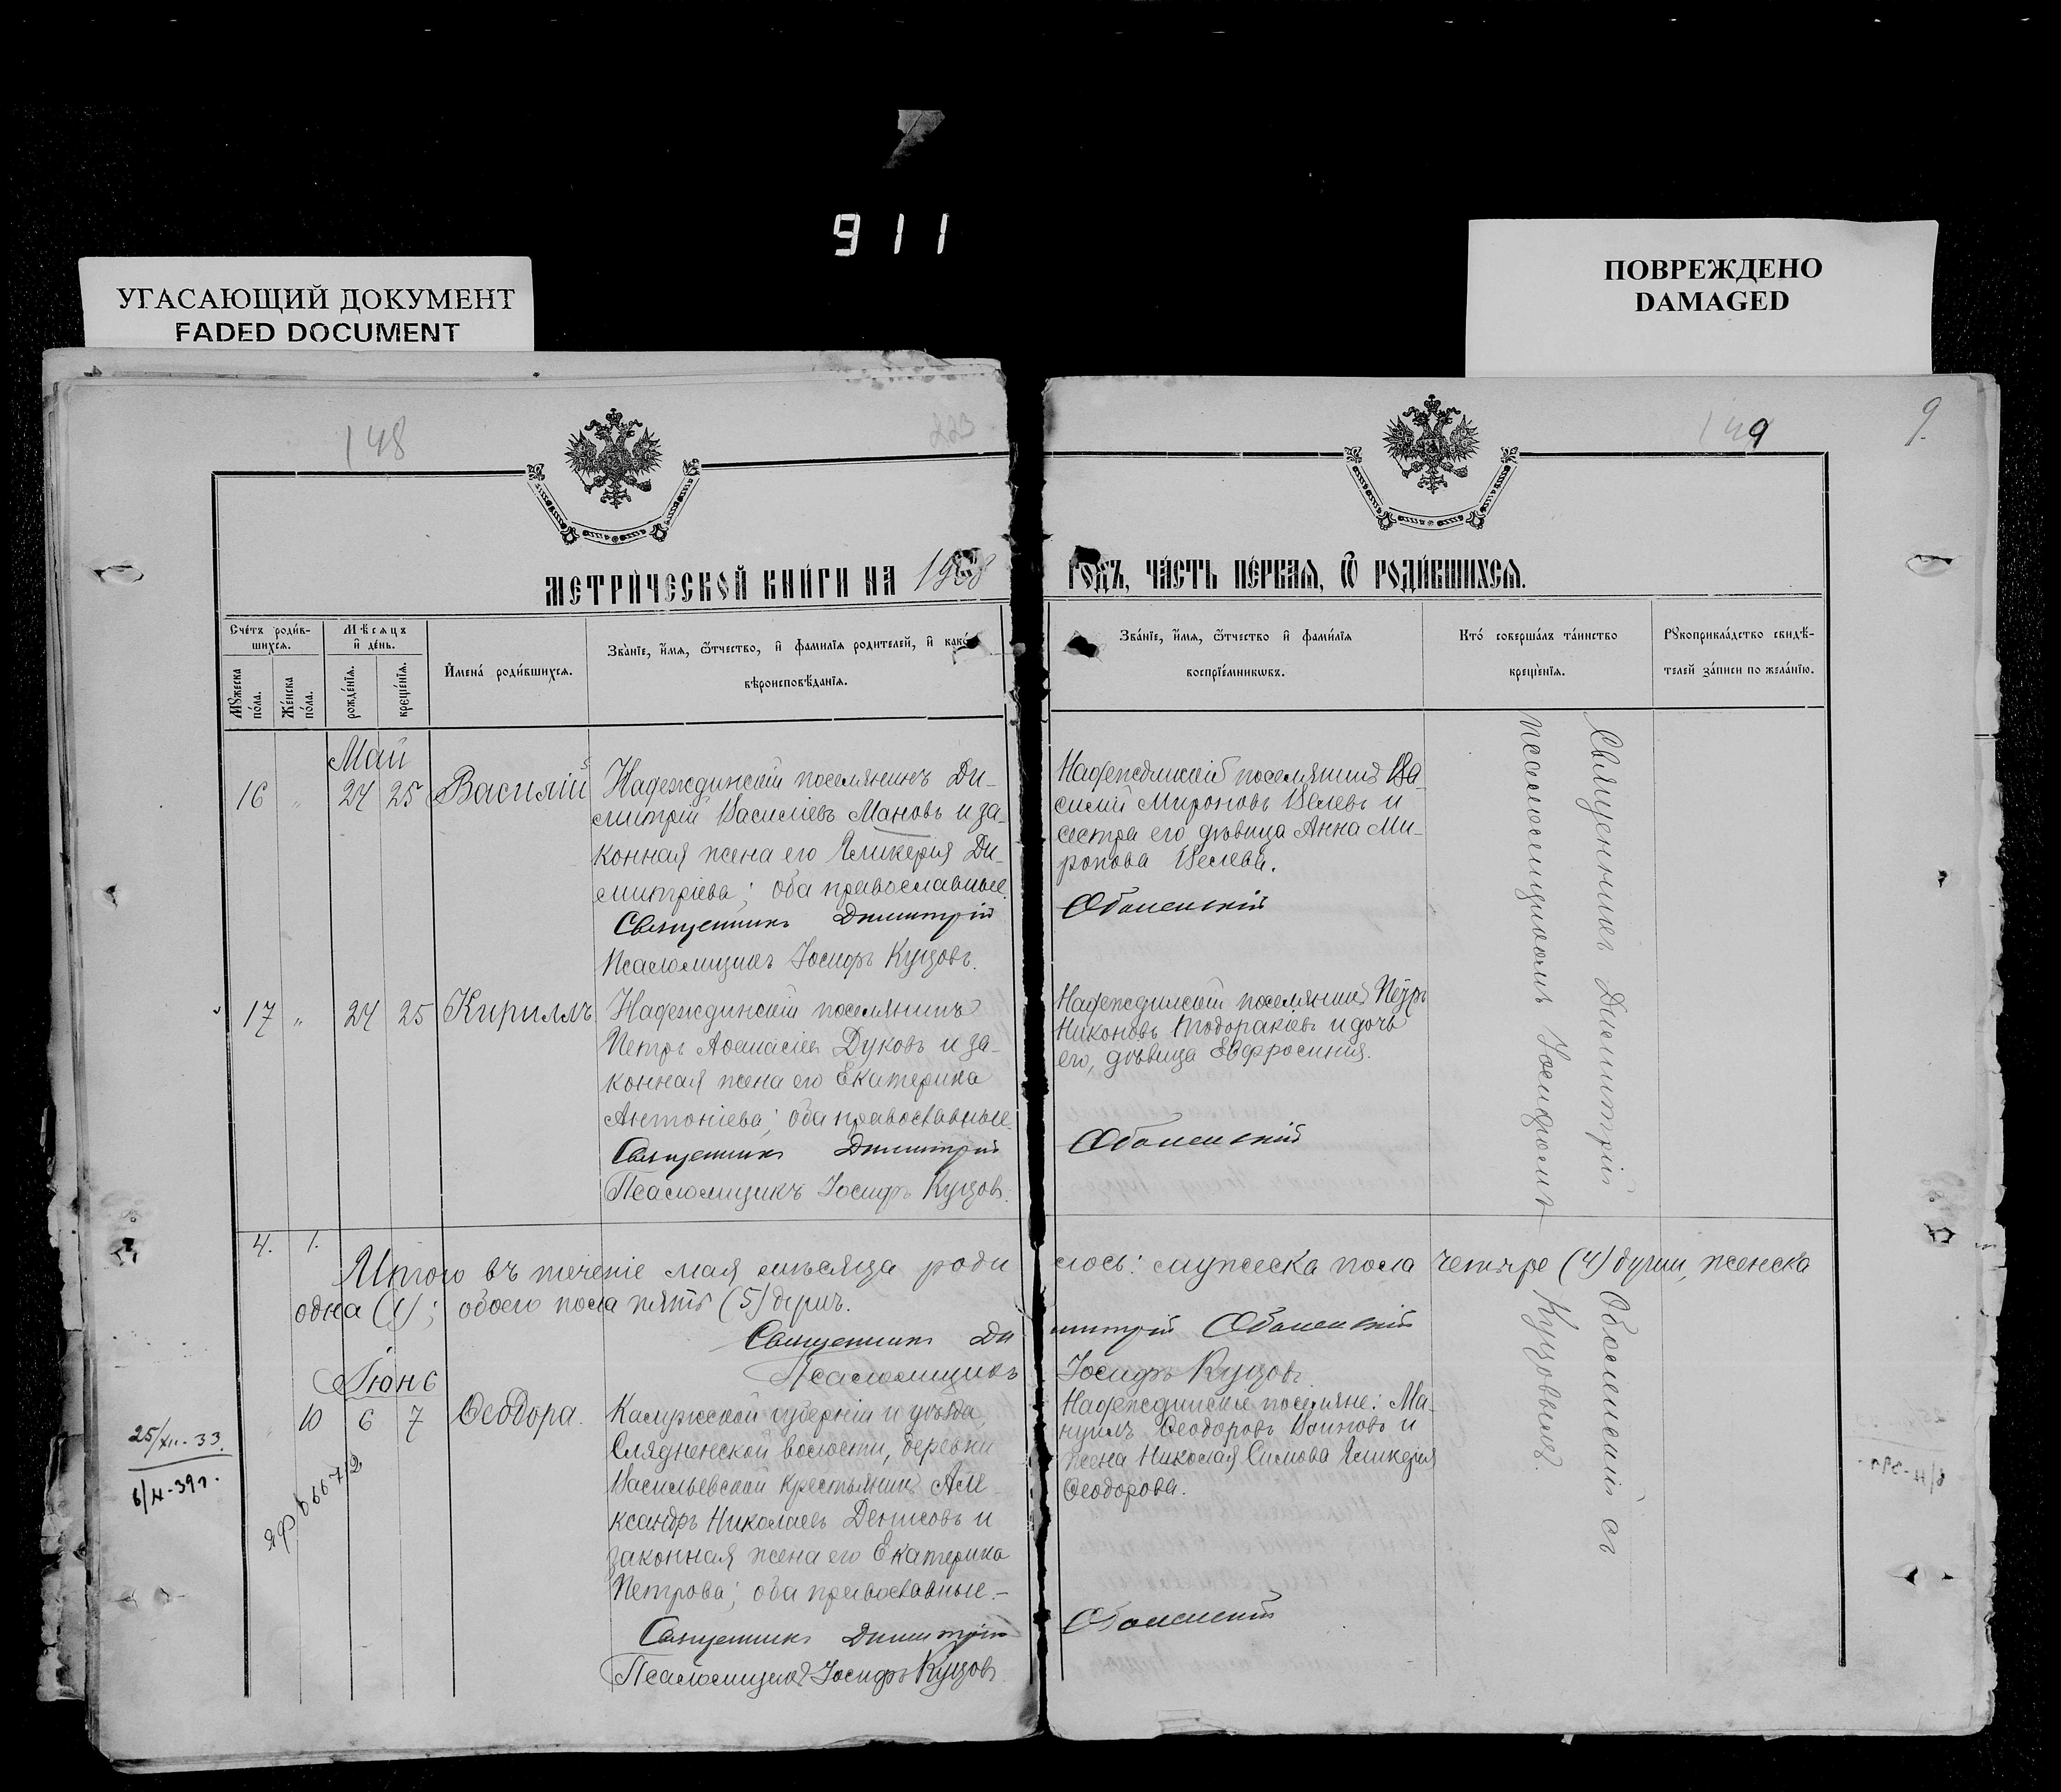 911
УГАСАЮЩИЙ ДОКУМЕНТ
FADED DOCUMENT
ПОВРЕЖДЕНО
DAMAGED
148
223
149
9.
МЕТРИ́ЧЕСКОЙ КНИ́ГИ НА 1908
ГОДЪ, ЧА́СТЬ ПЕ́РВАЯ, Ѿ РОДИ́ВШИХСЯ.
Сче́тъ роди́в-
шихся.
Мѣ́сяцъ
и҆ де́нь.
И҆мена̀ роди́вшихся.
Зва́нїе, и҆́мя, ѻ҆́тчество, и҆ фами́лїя роди́телей, и҆ како́
вѣроисповѣ́данїя.
Мꙋ́жеска по́ла.
Же́нска по́ла.
рожде́нїя.
креще́нїя.
Зва́нїе, и҆́мя, ѻ҆́тчество и҆ фами́лїя
воспрїе́мникѡвъ.
Кто̀ соверша́лъ та́инство
креще́нїя.
Рꙋкоприкла́дство свидѣ́-
телей за́писи по жела́нїю.
Май
16 " 24 25 Василій
Надеждинскій поселянинъ Ди-
митрій Василіевъ Мановъ и за-
конная жена его Гликерія Ди-
митріева; оба православные.
Священникъ Димитрій
Псаломщикъ Іосифъ Куцовъ.
Надеждинскій поселянинъ Ва-
силій Мироновъ Велевъ и
сестра его дѣвица Анна Ми-
ронова Велева.
Оболенскій
17 " 24 25 Кириллъ
Надеждинскій поселянинъ
Петръ Аѳанасіевъ Дуковъ и за-
конная жена его Екатерина
Антоніева; оба православные.
Священникъ Димитрій
Псаломщикъ Іосифъ Куцовъ.
Надеждинскій поселянинъ Петръ
Никоновъ Тодоракіевъ и дочь
его, дѣвица Евфросинія.
Оболенскій
Священникъ Димитрій Оболенскій съ
псаломщикомъ Іосифомъ Куцовымъ.
4. 1.
Итого въ теченіе мая мѣсяца роди лось: мужеска пола четыре (4) души, женска
одна (1); обоего пола пять (5) душъ.
Священникъ Ди митрій Оболенскій
Псаломщикъ Іосифъ Куцовъ
Іюнь
" 10 6 7 Ѳеодора.
Калужской губерніи и уѣзда,
волости, деревни
Васильевской крестьянинъ Але-
ксандръ Николаевъ Денисовъ и
законная жена его Екатерина
Петрова; оба православные.-
Священникъ Димитрій
Псаломщикъ Іосифъ Куцовъ
Надеждинскіе поселяне: Ма-
нуилъ Ѳеодоровъ Воиновъ и
жена Николая Симова Гликерія
Ѳеодорова.
Оболенскій
25/XII-33.
6/IV-39г.